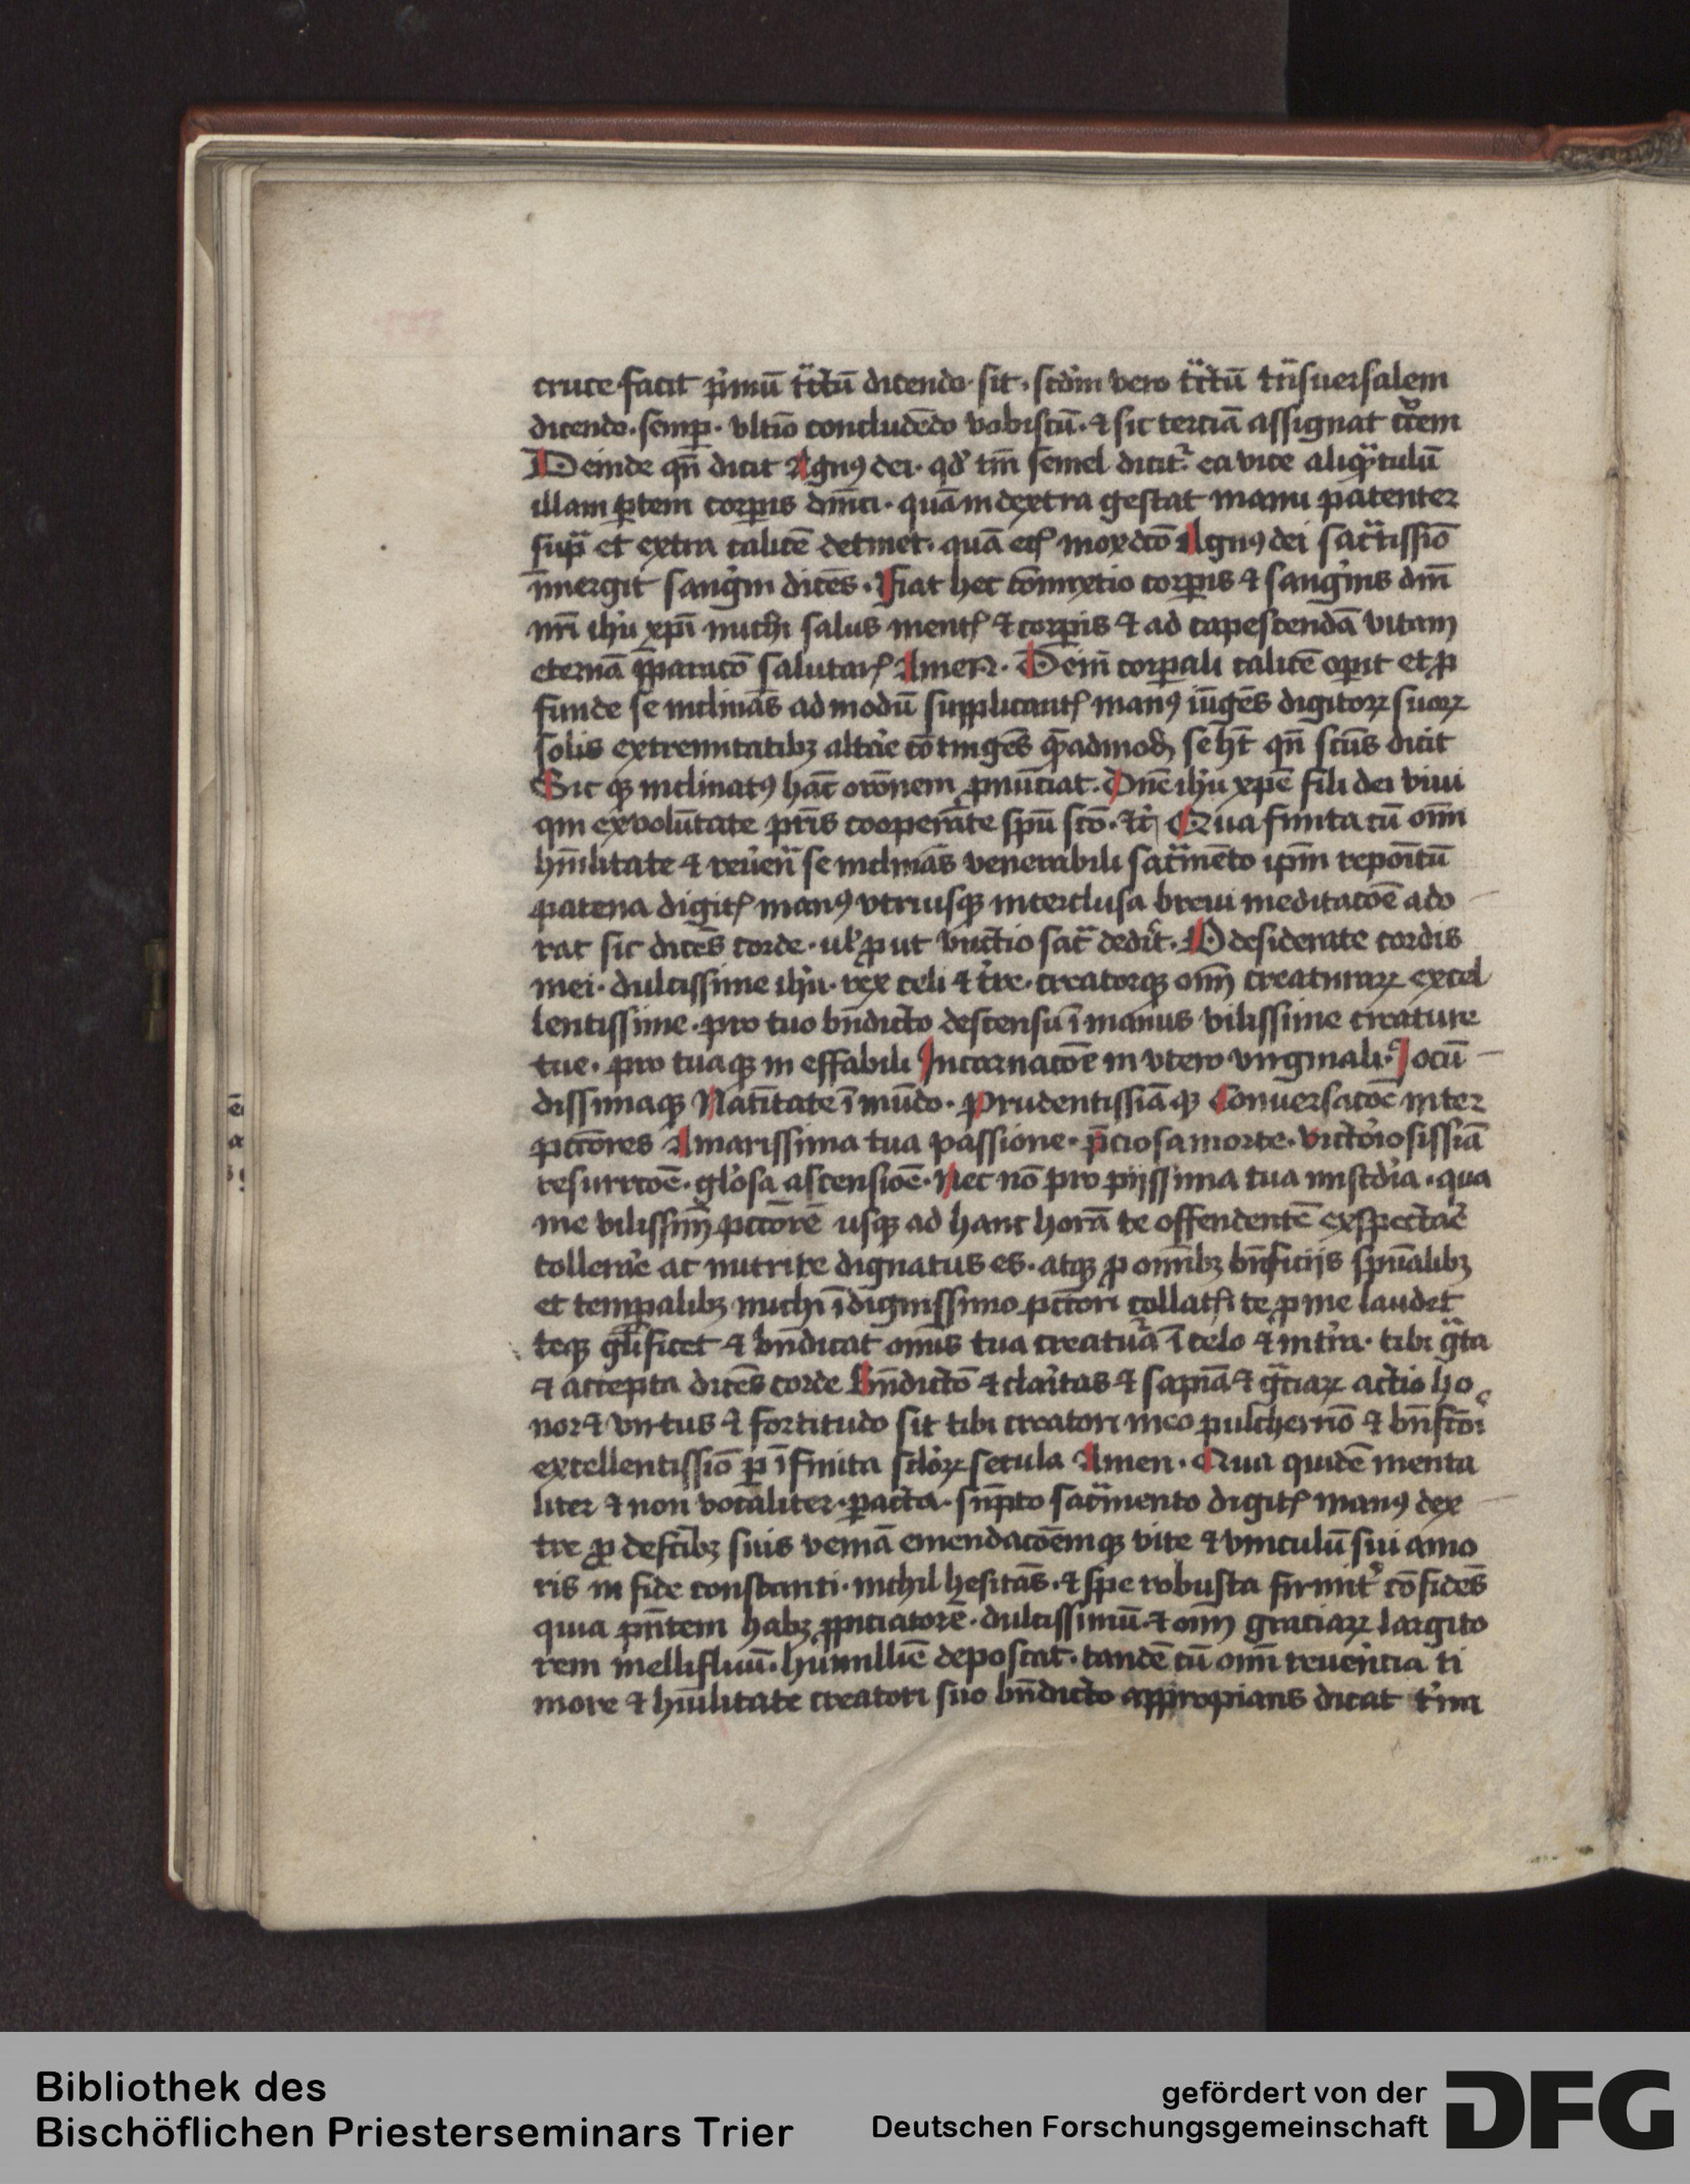 cruce facit p'mū tᵃctū dicendo sit. scd'm vero tᵃctū tᵃnsuersalem
dicendo. semꝑ. vltīo concludēdo vobiscū. ⁊ sic terciā assignat
Deinde qn̄ dicit Agnꝰ dei. qd' tm̄ semel dicit'. ea vice aliqᵃtulū
illam ꝑtem corꝑis dn̄ici. quā in dextra gestat manu patenter
supᵃ et extra calicē detinet. quā eciā mox dc̄o Agnꝰ dei sacᵃtissīo
īmergit sangⁱnī dicēs. Fiat hec cōmixtio corꝑis ⁊ sangⁱnis dn̄i
nr̄i ihū xp̄i michi salus mentꝭ ⁊ corꝑis ⁊ ad capescendā vitam
eternā p̄paracō salutarꝭ Amen. Dein̄ corꝑali calicē oꝑit et ꝓ
funde se inclinās ad modū supplicantꝭ manꝰ iūgēs digitorꝝ suorꝝ
solis extremitatibꝫ altar̄e cōtingēs quēadmod' se hēt qn̄ scūs dicit
Sic qꝫ inclinatꝰ hāc orōnem ꝓnūciat. Dn̄e ihū xp̄e fili dei viui
qui ex volūtate pr̄is cooperāte sp̄u scō. ⁊c̄ Qua finita cū om̄i
hūilitate ⁊ reuēn̄ se inclinās venerabili sacᵃmēto ip̄m repoītū
patena digitꝭ manꝰ vtriusqꝫ interclusa breui meditacōē ado
rat sic dicēs corde. ul' ꝓut vnctio sacᵃ ded'it. O desiderate cordis
mei. dulcissime ihū. rex celi ⁊ t're. creatorqꝫ om̄ creaturarꝝ excel
lentissime. pro tuo bn̄dicto descensu ī manus vilissime creature
tue. pro tuaqꝫ in effabili Incarnacōe in vtero virginali. Iocū
dissimaqꝫ Natītate ī mūdo. Prudentissīāqꝫ Conuersacōē inter
pctōres Amarissima tua passione. p̄ciosa morte. victōiosissīā
resurrcōē. gl'osa ascensiōē. Nec nō pro pijssima tua mis̄cd'ia. qua
me vilissim̄ pctōrē usqꝫ ad hanc horā te offendentē exspectar̄e
toller̄e ac nutrire dignatus es. atqꝫ ꝓ om̄ibꝫ bn̄ficijs spūalibꝫ
et temꝑalibꝫ michi īdignissimo pctōri collatꝭ te ꝑ me laudet
teqꝫ gl'ificet ⁊ bn̄dicat om̄is tua creatura ī celo ⁊ in t'ra. tibi gᵃta
⁊ accepta dicēs corde Bn̄dictō ⁊ clar̄itas ⁊ sapīa ⁊ gᵃciarꝝ actio ho
nor ⁊ virtus ⁊ fortitudo sit tibi creatori meo pulcherīō ⁊ bn̄fc̄ori
excellentissīo ꝑ īfinita sclōrꝝ secula Amen. Qua quidē menta
liter ⁊ non vocaliter. ꝑacta. sūpto sacᵃmento digitꝭ manꝰ dex
tre ꝓ defc̄ibꝫ suis veniā emendacōēmqꝫ vite ⁊ vinculū sui amo
ris in fide constanti. nichil hesitās. ⁊ spe robusta firmit' cōfidēs
quia p̄ntem habꝫ ꝓpiciatorē. dulcissimū. ⁊ om̄ graciarꝝ largito
rem mellifluū. humillīe deposcat. tandē cū om̄i reuēncia ti
more ⁊ hūilitate creatori suo bn̄dicto appropians dicat t'ina
Bibliothek des
Bischöflichen Priesterseminars Trier
gefördert von der
Deutschen Forschungsgemeinschaft
DFG